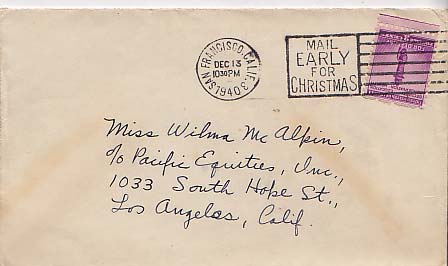 SAN FRANCISCO, CALIF.
DEC 13
10 30 PM
1940
MAIL
EARLY
FOR
CHRISTMAS
Miss Wilma McAlpin,
c/o Pacific Equities, Inc.,
1033 South Hope St.,
Los Angeles, Calif.